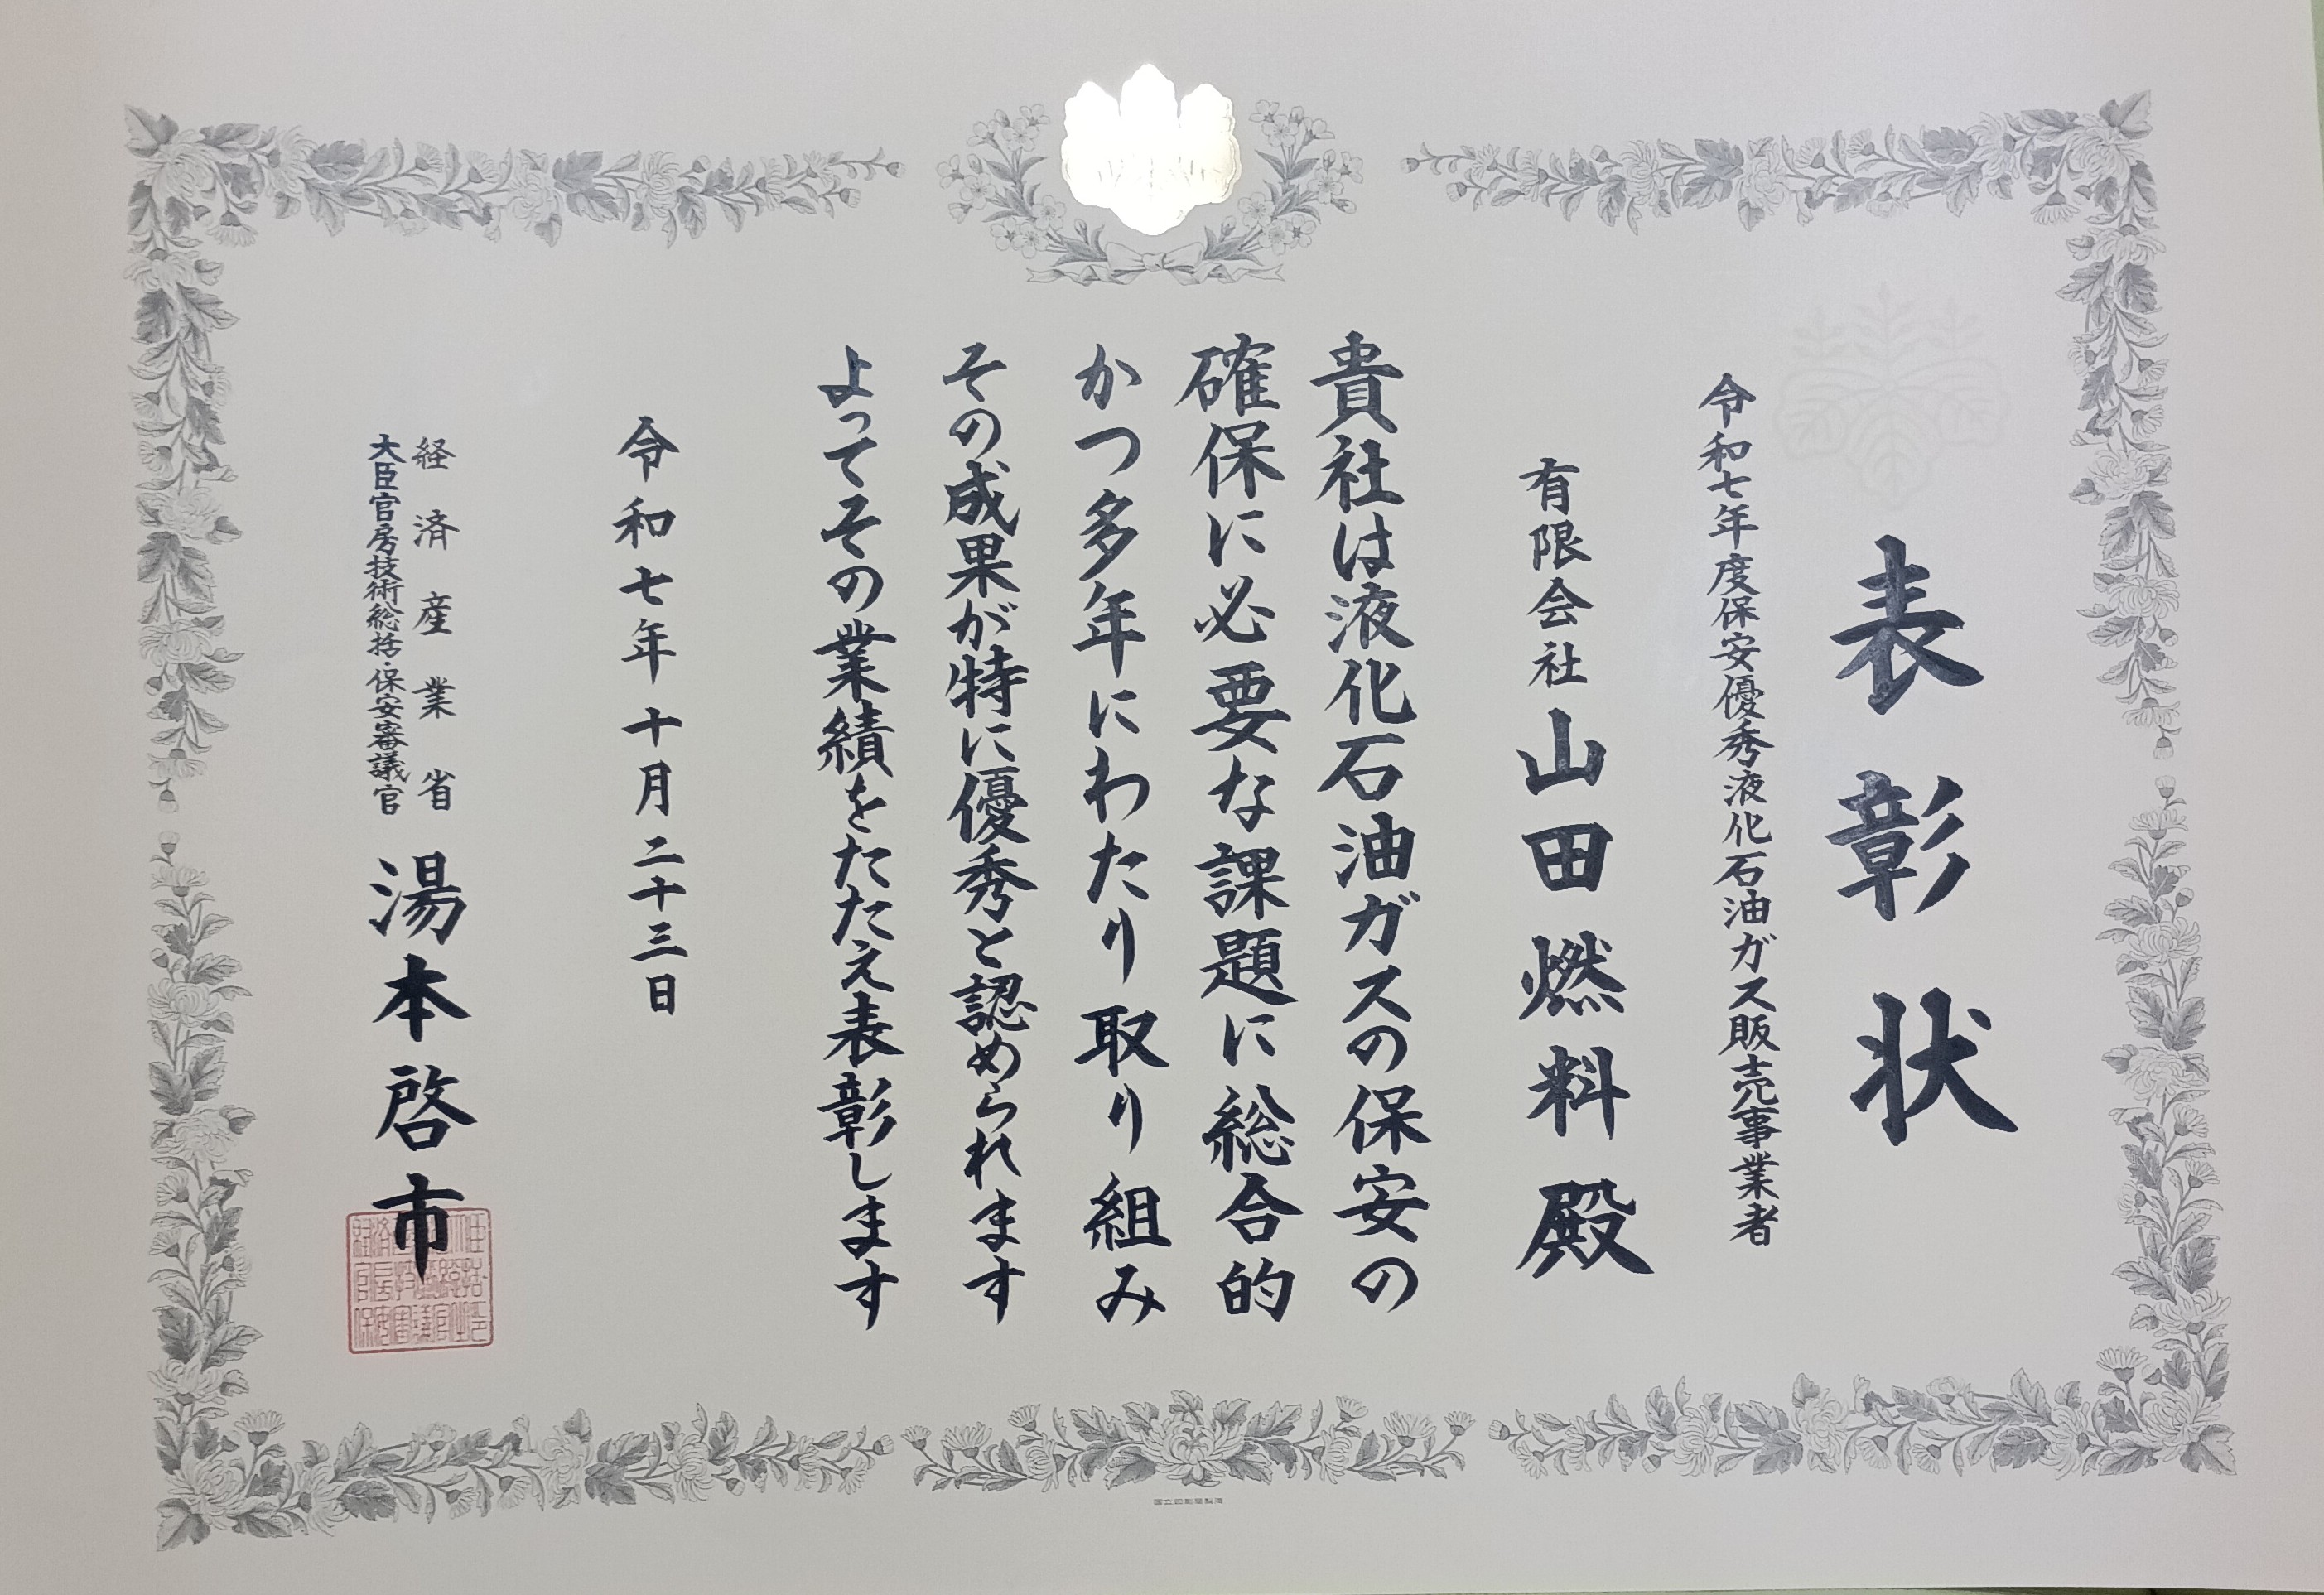 表彰状
令和七年度保安優秀液化石油ガス販売事業者
有限会社山田燃料殿
貴社は液化石油ガスの保安の
確保に必要な課題に総合的
かつ多年にわたり取り組み
その成果が特に優秀と認められます
よってその業績をたたえ表彰します
令和七年十月二十三日
経済産業省
大臣官房技術総括・保安審議官
湯本啓市
国立印刷局製造